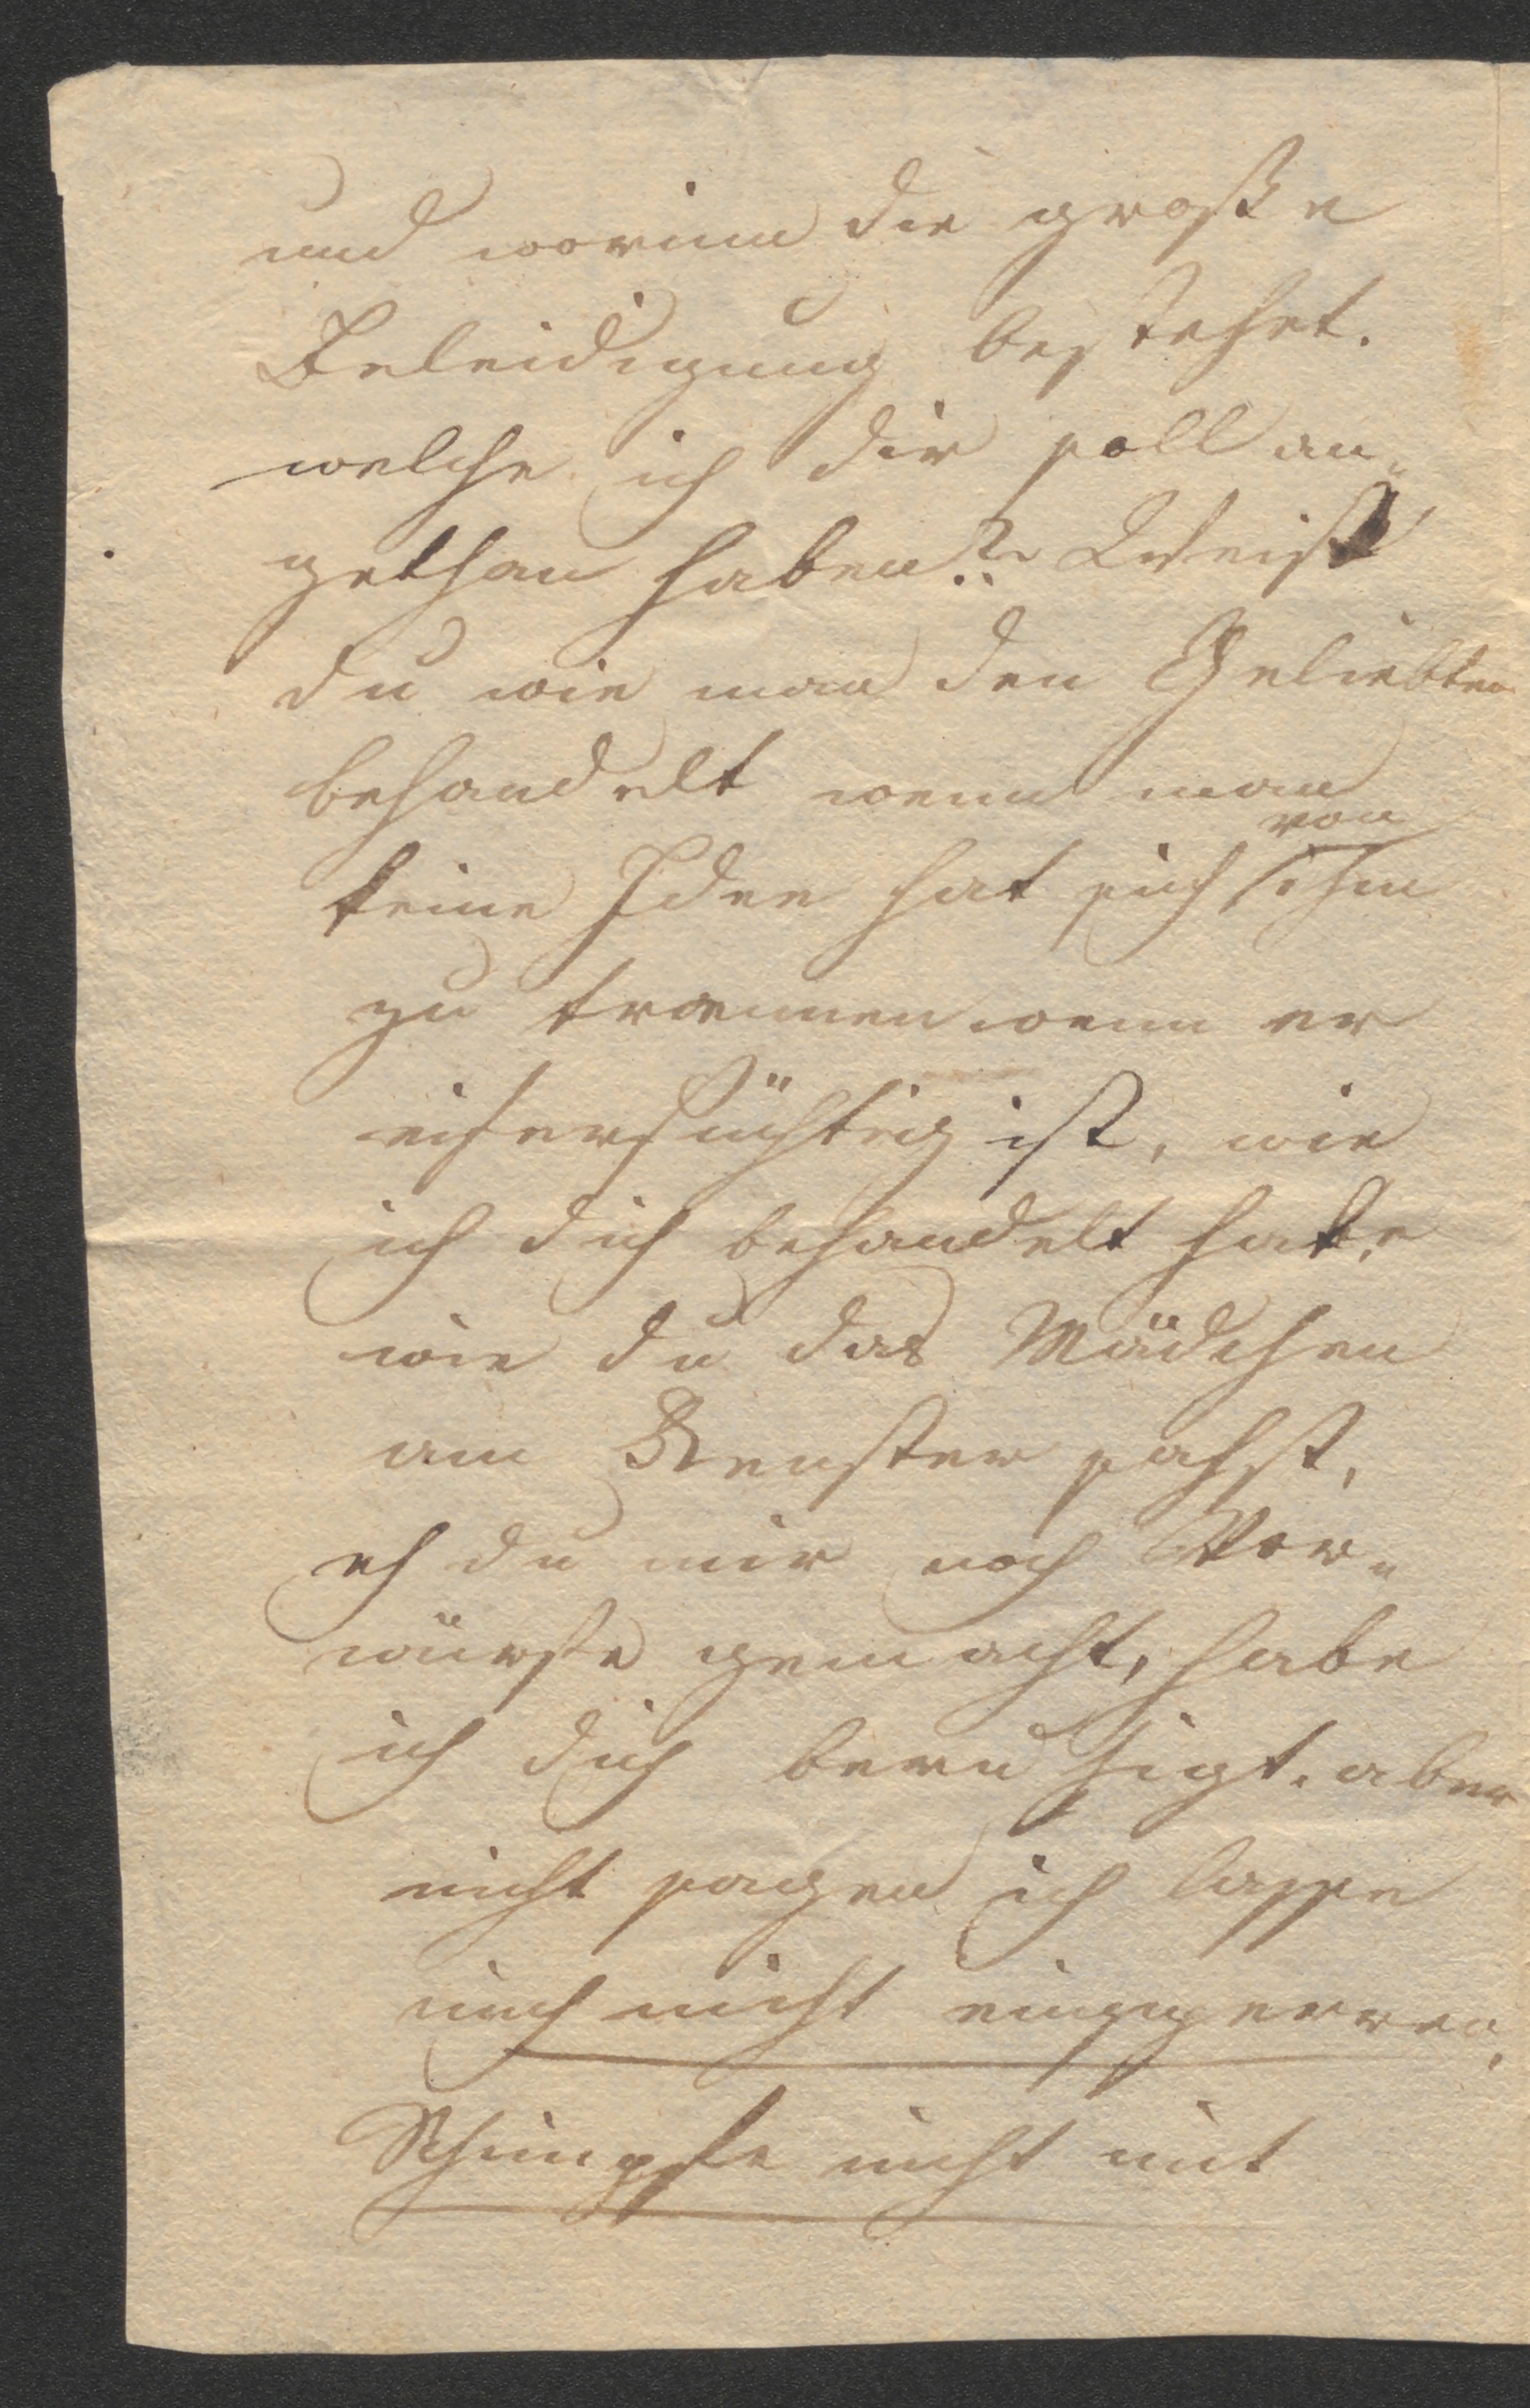 und worinn die große
Beleidigung bestehet.
welche ich dir soll an„
gethan haben? Weist
du wie man den Geliebten
behandelt wenn man
keine Idee hat sich von ihm
zu trennen wenn er
eifersüchtig ist, wie
ich dich behandelt habe,
wie du das Mädchen
am Fenster sahst,
eh du mir noch Vor„
würfe gemacht, habe
ich dich beruhigt. aber
nicht sagen ich lasse
mich nicht einsperren,
Schimpfe nicht mit